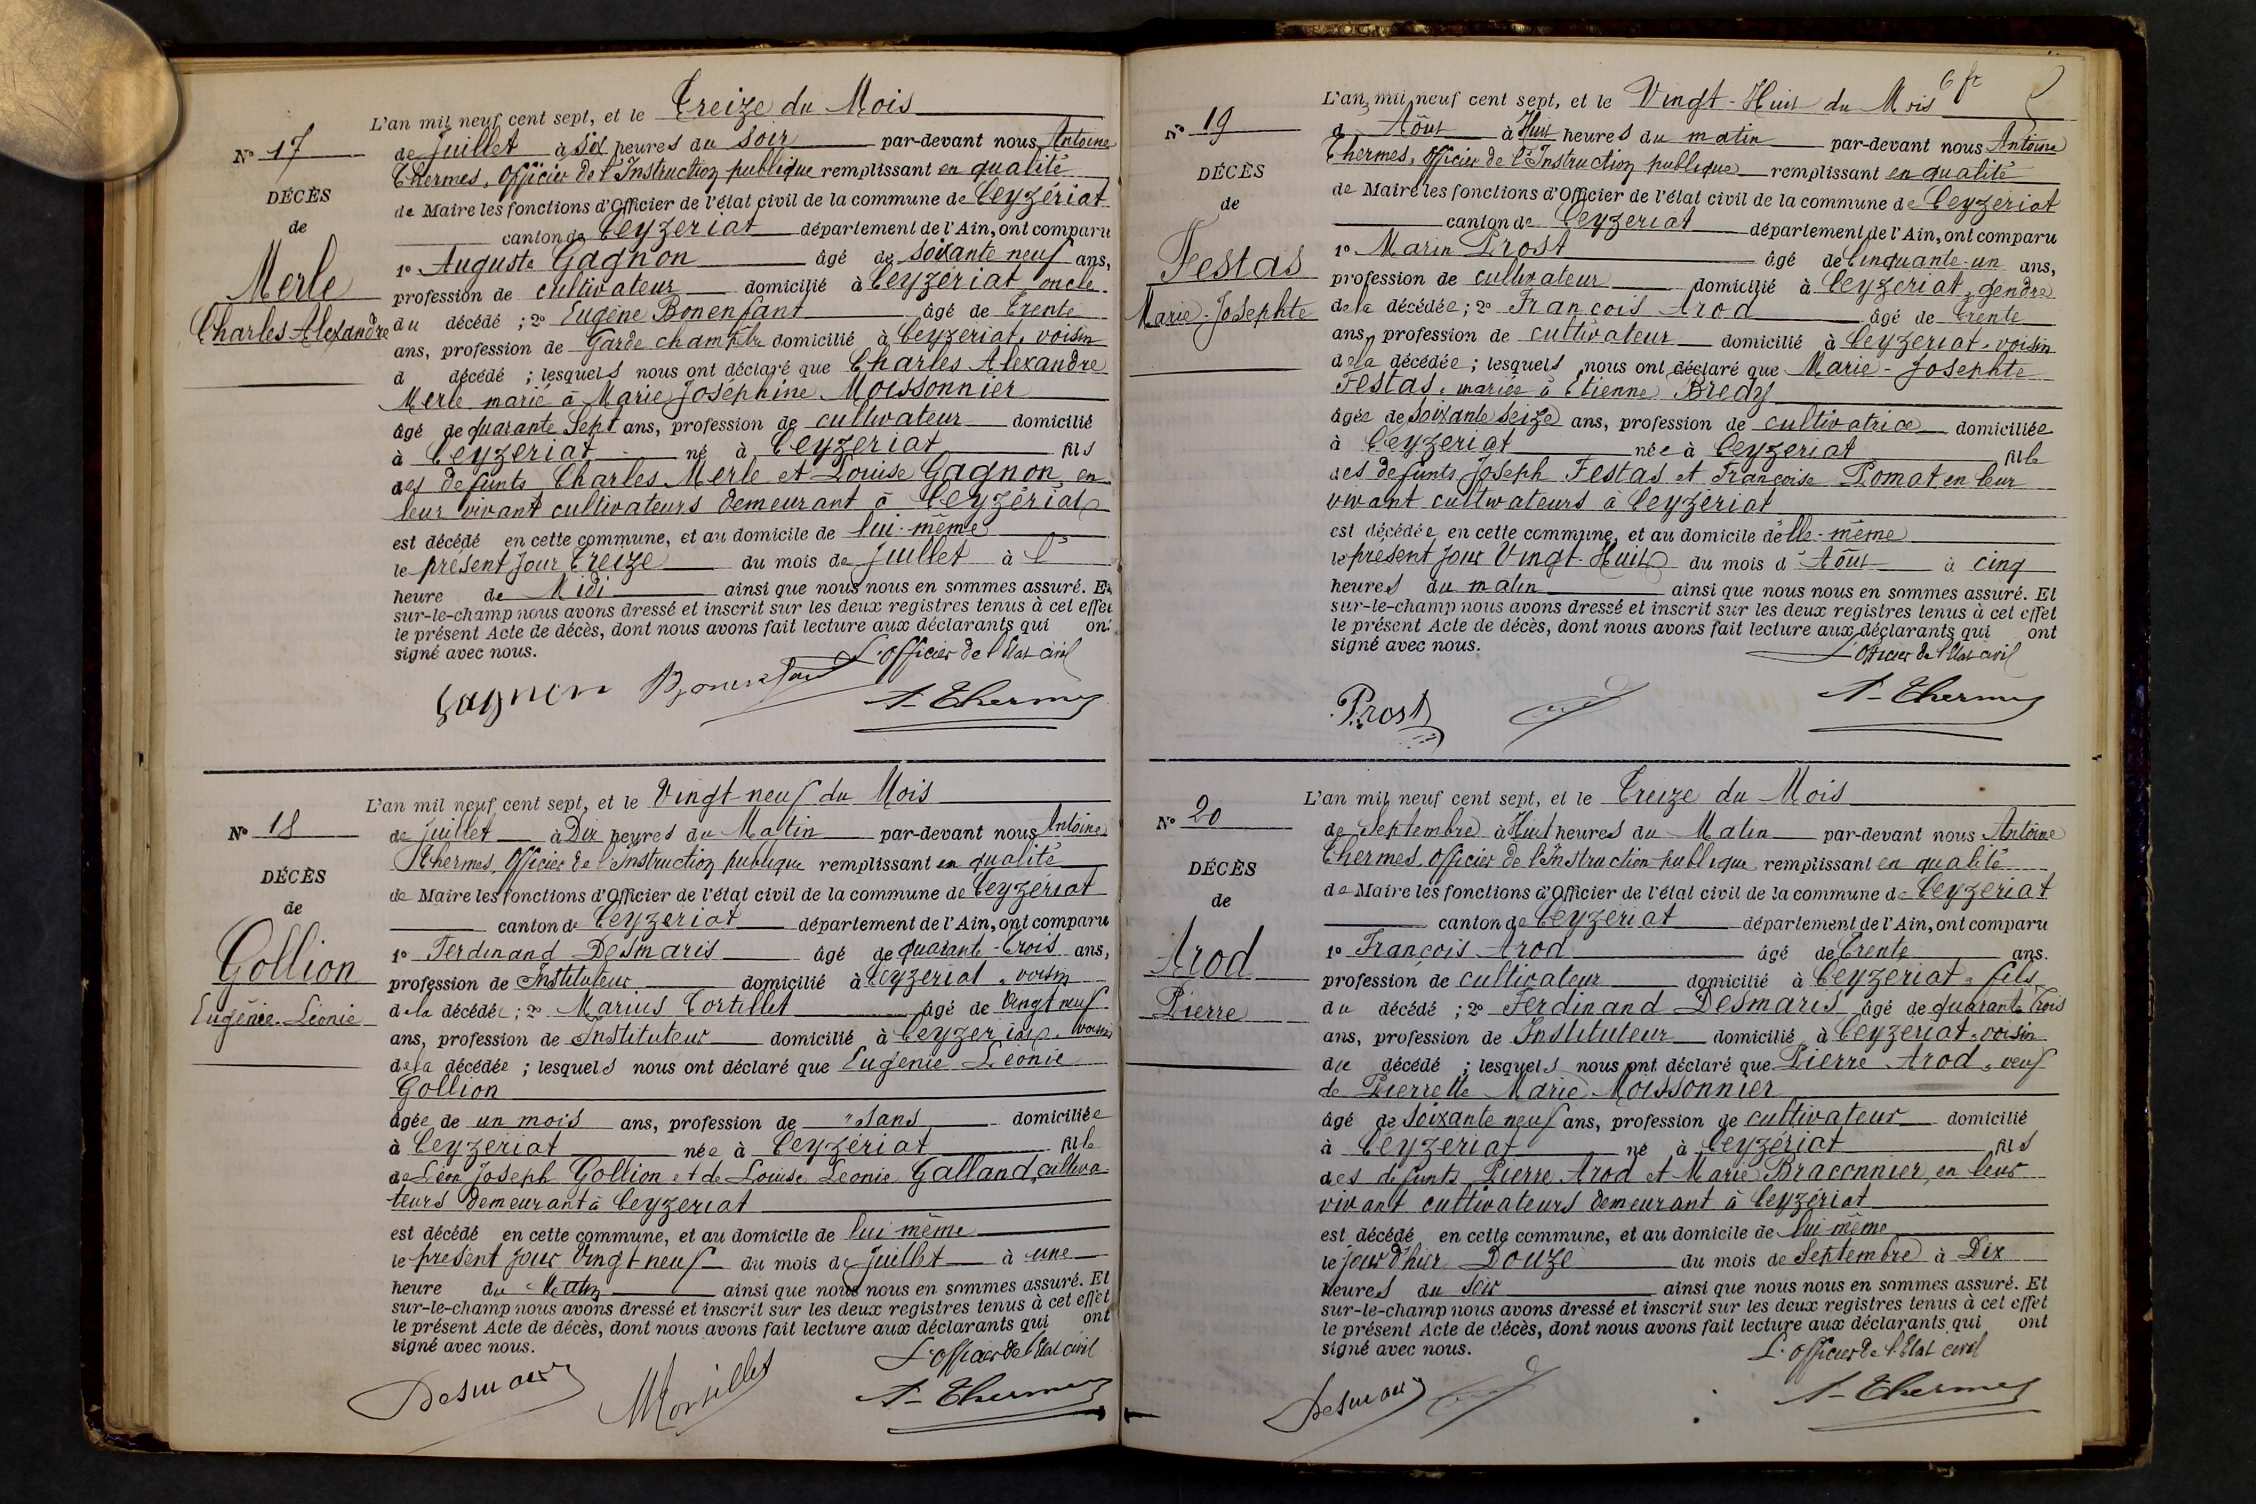 L'an mil neuf cent sept, et le Treize du Mois
N° 17
de Juillet à Six heures du soir par-devant nous Antoine
Thermes, Officier de l'Instruction publique remplissant en qualité
DÉCÈS
de Maire les fonctions d'Officier de l'état civil de la commune de Ceyzériat
de
canton de Ceyzeriat département de l'Ain, ont comparu
1° Auguste Gagnon âgé de soixante neuf ans,
Merle
profession de cultivateur domicilié à Ceyzériat, oncle
Charles Alexandre
du décédé ; 2° Eugène Bonenfant âgé de Trente
ans, profession de Garde champêtre domicilié à Ceyzeriat, voisin
d décédé ; lesquels nous ont déclaré que Charles Alexandre
Merle marié à Marie Joséphine Moissonnier
âgé de quarante sept ans, profession de cultivateur domicilié
à Ceyzeriat né à Ceyzeriat fils
des defunts Charles Merle et Louise Gagnon, en
leur vivant cultivateurs demeurant à Ceyzériat
est décédé en cette commune, et au domicile de lui-même
le présent jour Treize du mois de Juillet à l'
heure de Midi ainsi que nous nous en sommes assuré. Et
sur-le-champ nous avons dressé et inscrit sur les deux registres tenus à cet effet
le présent Acte de décès, dont nous avons fait lecture aux déclarants qui ont
signé avec nous.
L'officier de l'Etat civil
Gagnon Bonenfant A. Thermes
L'an mil neuf cent sept, et le Vingt-neuf du Mois
N° 18
de Juillet à Dix heures du Matin par-devant nous Antoine
Thermes, Officier de l'Instruction publique remplissant en qualité
DÉCÈS
de Maire les fonctions d'Officier de l'état civil de la commune de Ceyzériat
de
canton de Ceyzeriat département de l'Ain, ont comparu
1° Ferdinand Desmaris âgé de quarante-Trois ans,
Gollion
profession de Instituteur domicilié à Ceyzeriat, voisin
Eugénie-Léonie
de la décédée ; 2° Marius Tortillet âgé de Vingt neuf
ans, profession de Instituteur domicilié à Ceyzeriat, voisin
de la décédée ; lesquels nous ont déclaré que Eugénie Léonie
Gollion
âgée de un mois ans, profession de "sans domiciliée
à Ceyzériat née à Ceyzériat fille
de Léon Joseph Gollion et de Louise Léonie Galland, cultiva
teurs demeurant à Ceyzeriat
est décédé en cette commune, et au domicile de lui-même
le présent jour Vingt-neuf du mois de Juillet à une
heure du Matin ainsi que nous nous en sommes assuré. Et
sur-le-champ nous avons dressé et inscrit sur les deux registres tenus à cet effet
le présent Acte de décès, dont nous avons fait lecture aux déclarants qui ont
signé avec nous.
L'officier de l'Etat civil
Desmaris A. Thermes
6 fr
L'an mil neuf cent sept, et le Vingt-Huit du Mois
N° 19
d'Août à Huit heures du matin par-devant nous Antoine
Thermes, Officier de l'Instruction publique remplissant en qualité
DÉCÈS
de Maire les fonctions d'Officier de l'état civil de la commune de Ceyzeriat
de
canton de Ceyzeriat département de l'Ain, ont comparu
1° Marin Prost âgé de Cinquante-un ans,
Festas
profession de cultivateur domicilié à Ceyzeriat, gendre
Marie-Josephte
de la décédée ; 2° François Arod âgé de Trente
ans, profession de cultivateur domicilié à Ceyzeriat, voisin
de la décédée ; lesquels nous ont déclaré que Marie-Josephte
Festas, mariée à Etienne Bredy
âgée de soixante seize ans, profession de cultivatrice domiciliée
à Ceyzeriat née à Ceyzeriat fille
des defunts Joseph Festas et Françoise Pomat, en leur
vivant cultivateurs à Ceyzériat
est décédée en cette commune, et au domicile d'elle-même
le présent jour Vingt-Huit du mois d'Août à cinq
heures du matin ainsi que nous nous en sommes assuré. Et
sur-le-champ nous avons dressé et inscrit sur les deux registres tenus à cet effet
le présent Acte de décès, dont nous avons fait lecture aux déclarants qui ont
signé avec nous.
L'officier de l'Etat civil
Prost A. Thermes
L'an mil neuf cent sept, et le Treize du Mois
N° 20
de Septembre à Huit heures du Matin par-devant nous Antoine
Thermes, Officier de l'Instruction publique remplissant en qualité
DÉCÈS
de Maire les fonctions d'Officier de l'état civil de la commune de Ceyzeriat
de
canton de Ceyzeriat département de l'Ain, ont comparu
1° François Arod âgé de Trente ans.
Arod
profession de cultivateur domicilié à Ceyzeriat, fils
Pierre
du décédé ; 2° Ferdinand Desmaris âgé de quarante Trois
ans, profession de Instituteur domicilié à Ceyzeriat, voisin
du décédé ; lesquels nous ont déclaré que Pierre Arod, veuf
de Pierrette Marie Moissonnier
âgé de soixante neuf ans, profession de cultivateur domicilié
à Ceyzeriat né à Ceyzériat fils
des defunts Pierre Arod et Marie Braconnier, en leur
vivant cultivateurs demeurant à Ceyzériat
est décédé en cette commune, et au domicile de lui même
le jour d'hier Douze du mois de Septembre à Dix
heures du soir ainsi que nous nous en sommes assuré. Et
sur-le-champ nous avons dressé et inscrit sur les deux registres tenus à cet effet
le présent Acte de décès, dont nous avons fait lecture aux déclarants qui ont
signé avec nous.
L'officier de l'Etat civil
Desmaris A. Thermes